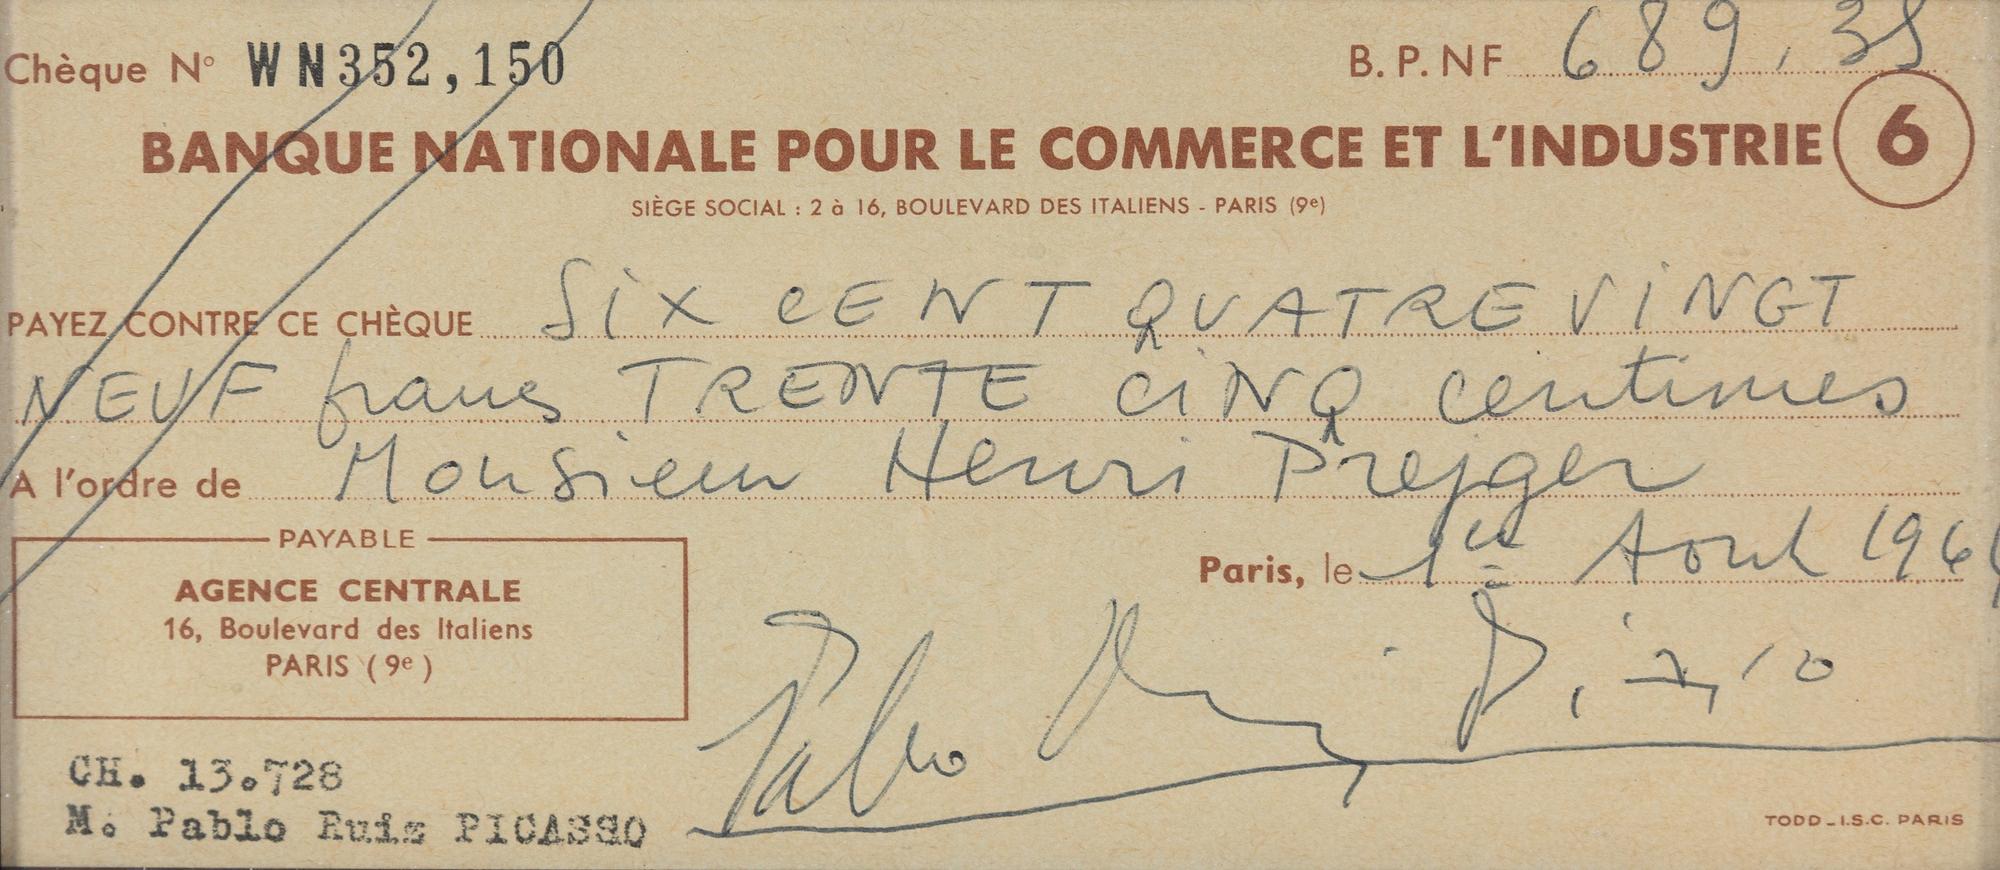 Chèque N° WN352,150
B. P. NF 689,35
BANQUE NATIONALE POUR LE COMMERCE ET L'INDUSTRIE 6
SIÈGE SOCIAL : 2 à 16, BOULEVARD DES ITALIENS - PARIS (9e)
PAYEZ CONTRE CE CHÈQUE SIX CENT QUATRE VINGT
NEUF francs TRENTE CINQ centimes
A l'ordre de Monsieur Henri Prejger
PAYABLE
AGENCE CENTRALE
16, Boulevard des Italiens
PARIS (9e)
Paris, le 1er Aout
Pablo Ruiz Picasso
CH. 13.728
M. Pablo Ruiz PICASSO
TODD_I.S.C. PARIS